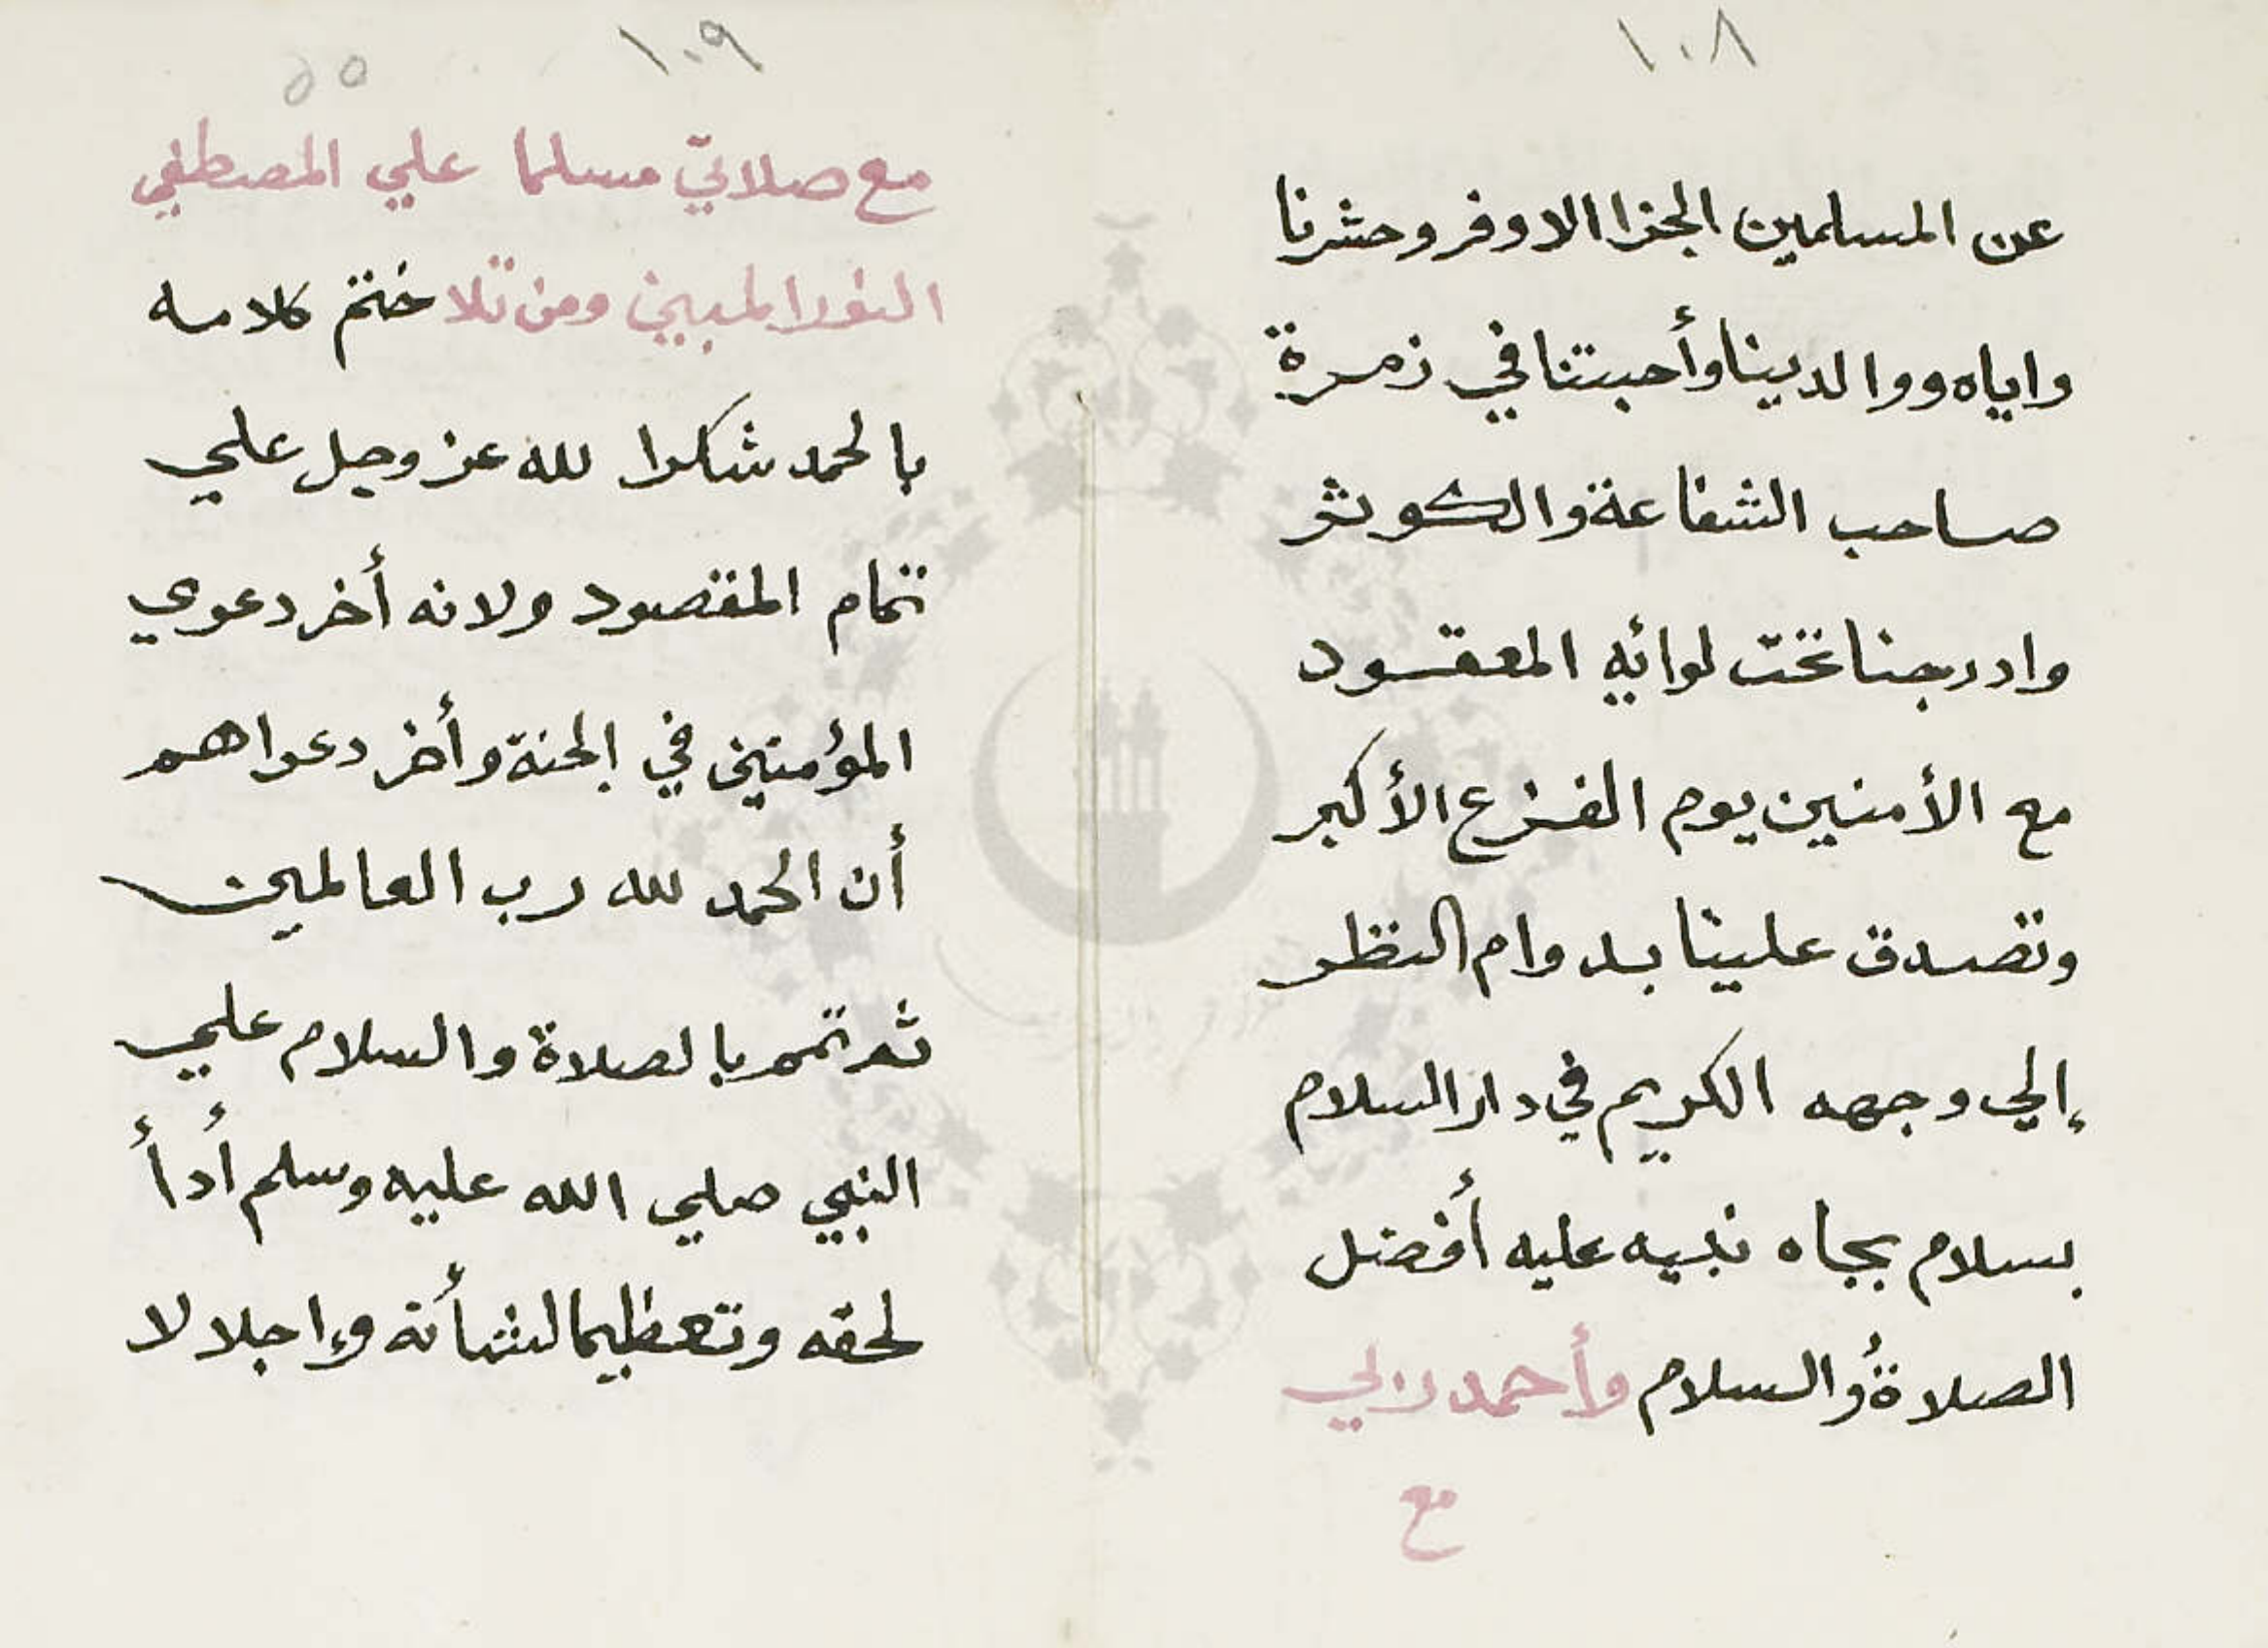 ١٠٨
عن المسلمين الجزا الاوفر وحشرنا
واياه ووالدينا وأحبتنا في زمرة
صاحب الشفاعة والكوثر
وادرجنا تحت لوائه المعقود
مع الأمنين يوم الفزع الأكبر
وتصدق علينا بدوام النظر
إلي وجهه الكريم في دار السلام
بسلام بجاه نبيه عليه أفضل
الصلاةُ والسلام وأحمد ربي
مع
١٠٩
٥٥
مع صلاتي مسلما علي المصطفي
النور المبين ومن تلا ختم كلامه
بالحمد شكرا لله عز وجل علي
تمام المقصود ولانه أخر دعوي
المؤمنين في الجنة وأخر دعواهم
أن الحمد لله رب العالمين
ثم تمم بالصلاة والسلام علي
النبي صلي الله عليه وسلم أدأ
لحقه وتعظيما لشأنه وإجلالا